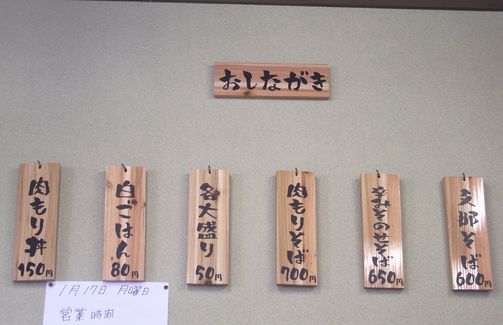 おしながき
文郎そば
600円
辛みそのせそば
650円
肉もりそば
700円
各大盛り
50円
白ごはん
80円
肉もり丼
150円
1月17日 月曜日
営業時間